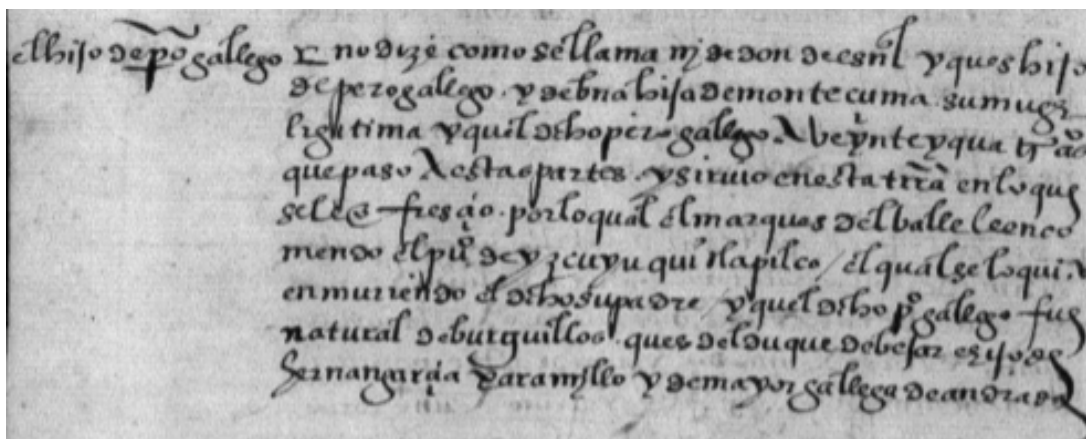 el hijo de p.o gallego
no dize como se llama nj de donde es nl y ques hijo
de pero gallego y de una hija de montecuma su muger
ligitima y quel dho pero gallego A beynte y qua tr años
que paso A estas partes y siruio en esta trra en lo que
se le ofresçio por lo qual el marques del balle le enco
mendo el pu.o de yzcuyuquitlapilco el qual se lo qui
en muriendo el dho su padre y quel dho p.o gallego fue
natural de burguillos ques del duque de bejar e hijo de
hernan garçia Xaramjllo y de mayor gallega de andrada